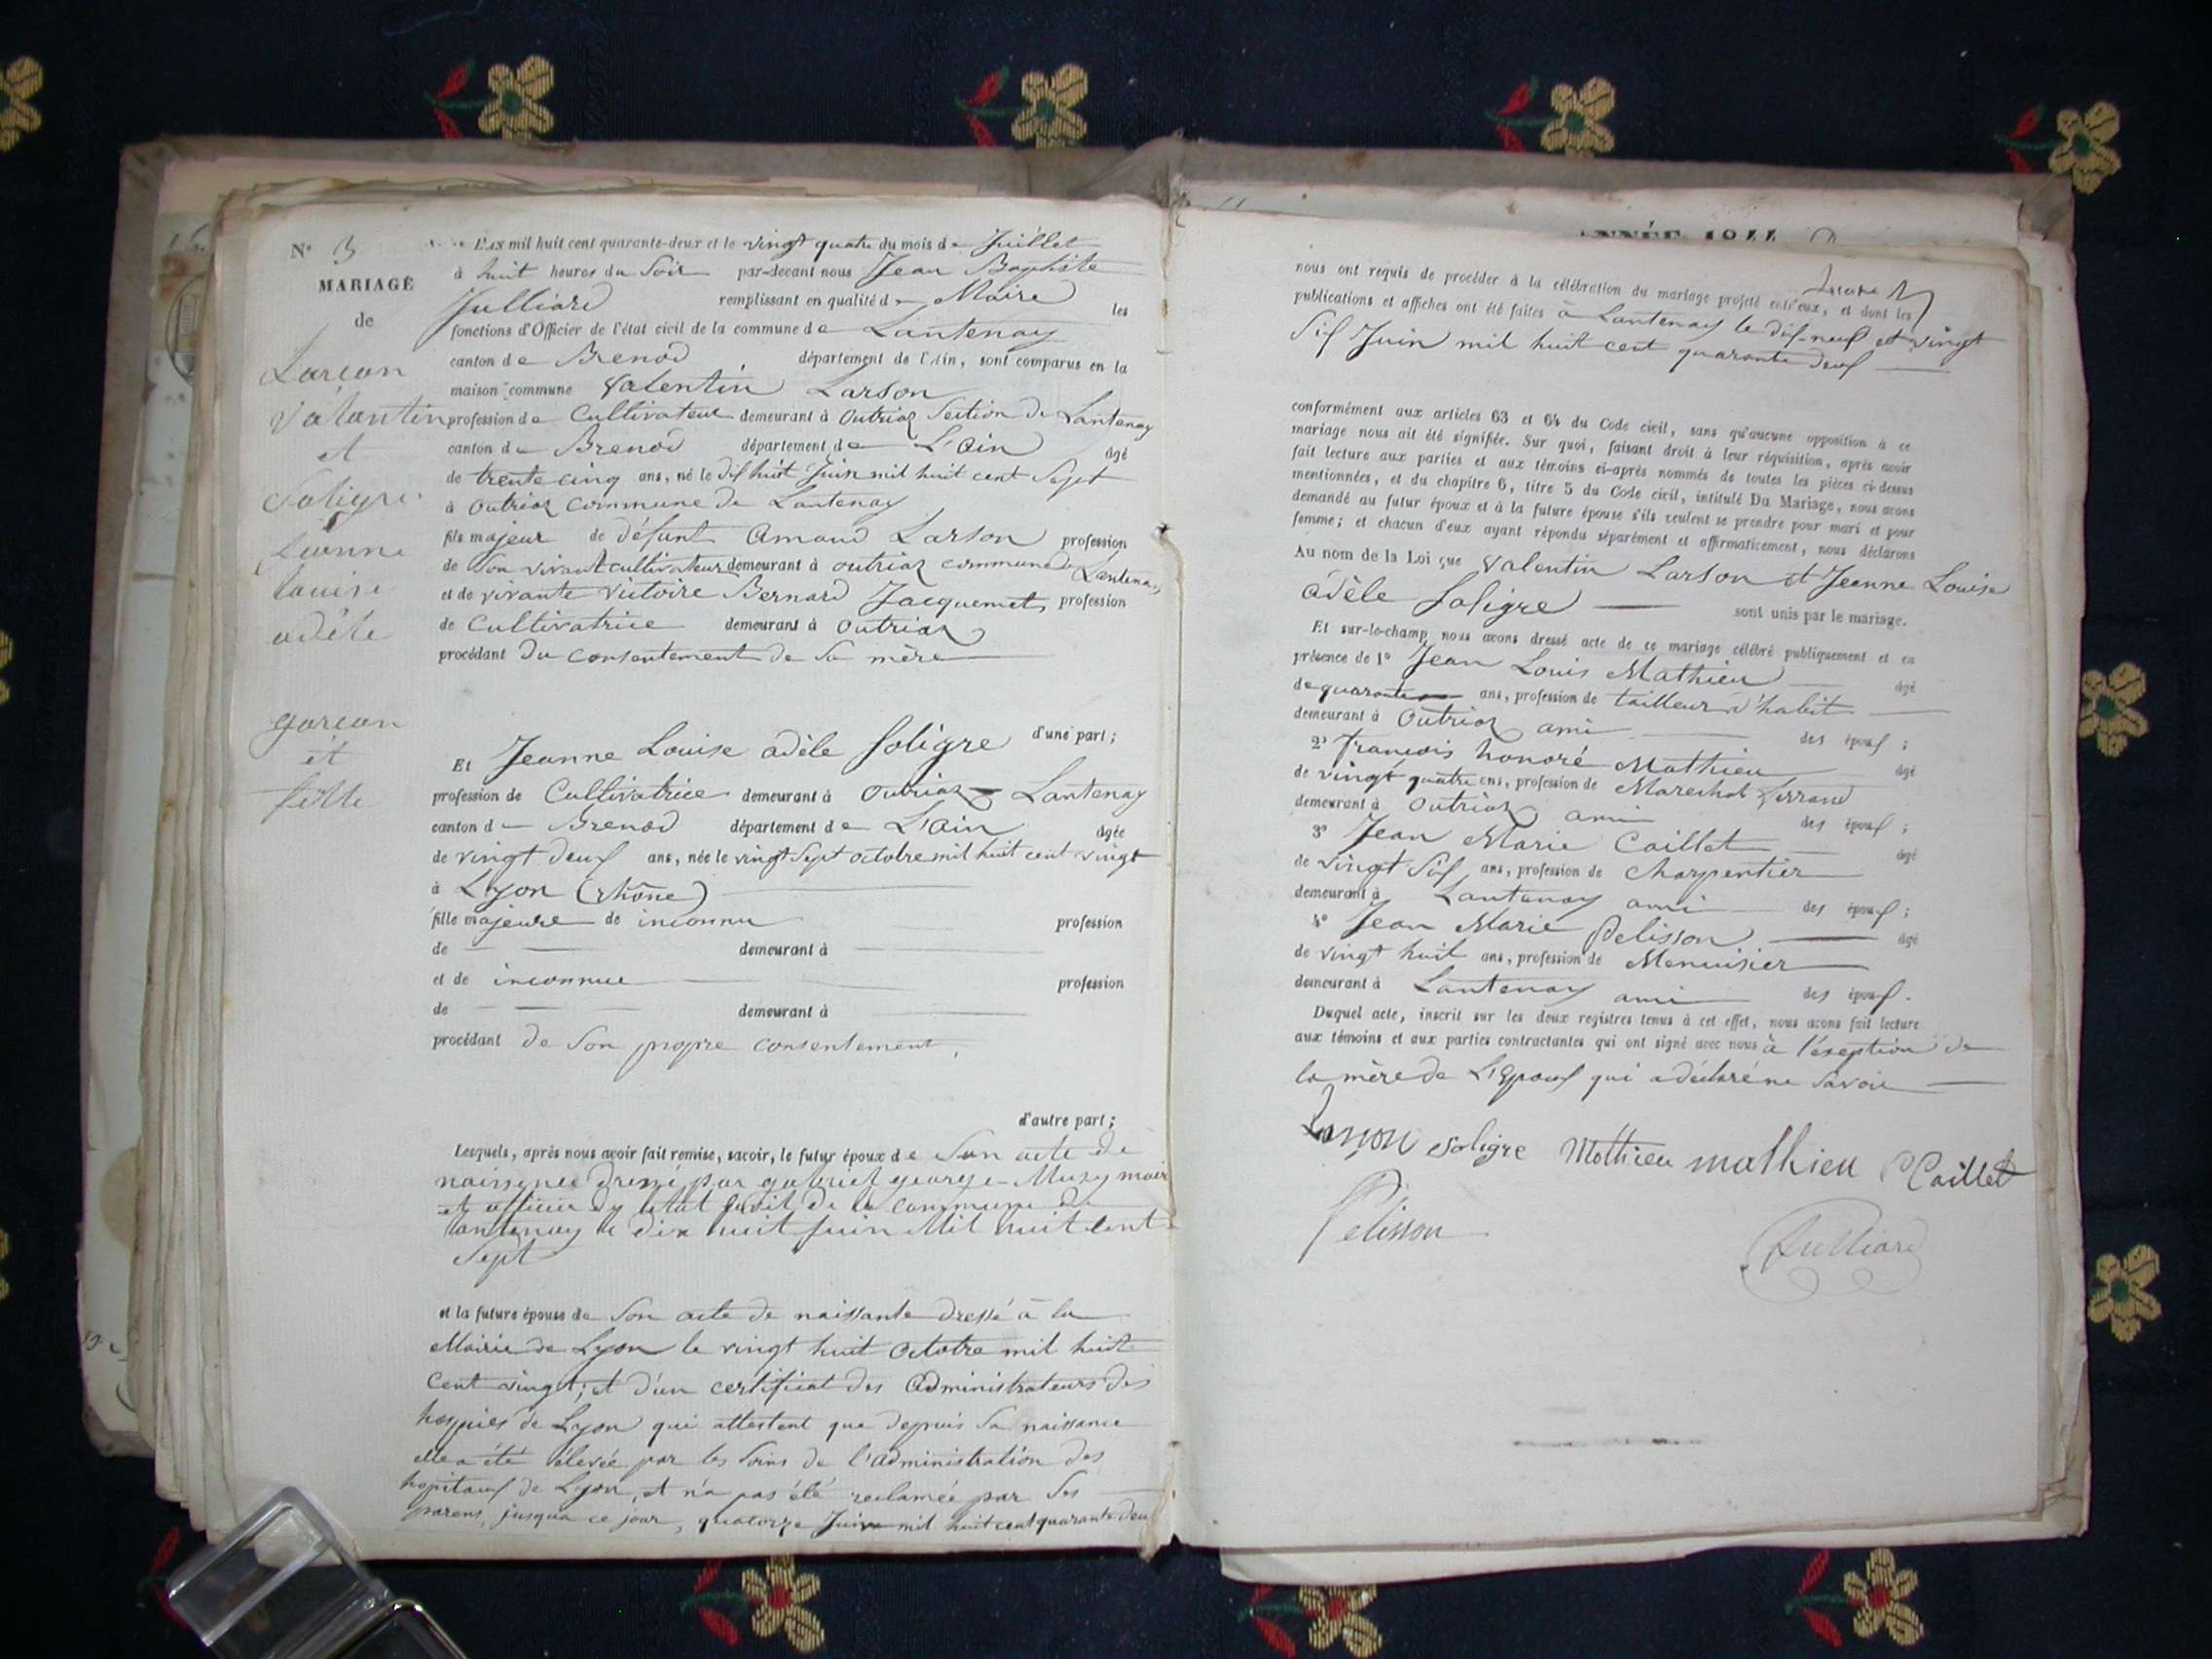 N° 3
MARIAGE
de
Larçon
Valantin
et
Soligre
Jeanne
louise
adèle
garçon
et
fille
L'an mil huit cent quarante-deux et le vingt quatre du mois de Juillet
à huit heures du Soir par-devant nous Jean Baptiste
Julliard remplissant en qualité de Maire les
fonctions d'Officier de l'état civil de la commune de Lantenay
canton de Brenod département de l'Ain, sont comparus en la
maison commune Valentin Larson
profession de Cultivateur demeurant à Outriaz Section de Lantenay
canton de Brenod département de L'Ain âgé
de trente cinq ans, né le dix huit Juin mil huit cent Sept
à Outriaz commune de Lantenay
fils majeur de défunt Amand Larson profession
de Son vivant cultivateur demeurant à outriaz commune de Lantenay
et de vivante Victoire Bernard Jacquemet profession
de Cultivatrice demeurant à Outriaz
procédant du consentement de Sa mère
d'une part;
Et Jeanne Louise adèle Soligre
profession de Cultivatrice demeurant à Outriaz Lantenay
canton de Brenod département de L'Ain âgée
de vingt deux ans, née le vingt Sept octobre mil huit cent vingt
à Lyon (rhône)
fille majeure de inconnu profession
de demeurant à
et de inconnue profession
de demeurant à
procédant de Son propre consentement,
d'autre part;
Lesquels, après nous avoir fait remise, savoir, le futur époux de Son acte de
naissance dressé par gabriel george Muzy maire
et officier de letat civil de la commune de
Lantenay le dix huit juin Mil huit cent
Sept
et la future épouse de Son acte de naissante dressé à la
Mairie de Lyon le vingt huit Octobre mil huit
Cent vingt; et d'un certificat des Administrateurs des
hospices de Lyon qui attestent que depuis Sa naissance
elle a été élevée par les Soins de l'administration des
hopitaux de Lyon, et n'a pas été reclamée par Ses
parens, jusqua ce jour, quatorze Juin mil huit cent quarante deux
ANNÉE 1844
nous ont requis de procéder à la célébration du mariage projeté entr'eux, et dont les
publications et affiches ont été faites à Lantenay le dix-neuf et vingt
Six Juin mil huit cent quarante deux
conformément aux articles 63 et 64 du Code civil, sans qu'aucune opposition à ce
mariage nous ait été signifiée. Sur quoi, faisant droit à leur réquisition, après avoir
fait lecture aux parties et aux témoins ci-après nommés de toutes les pièces ci-dessus
mentionnées, et du chapitre 6, titre 5 du Code civil, intitulé Du Mariage, nous avons
demandé au futur époux et à la future épouse s'ils veulent se prendre pour mari et pour
femme; et chacun d'eux ayant répondu séparément et affirmativement, nous déclarons
Au nom de la Loi que Valentin Larson et Jeanne Louise
adèle Soligre sont unis par le mariage.
Et sur-le-champ nous avons dressé acte de ce mariage célébré publiquement et en
présence de 1° Jean Louis Mathieu âgé
de quarante ans, profession de tailleur d'habit
demeurant à Outriaz ami des époux;
2° François honoré Mathieu âgé
de vingt quatre ans, profession de Marechal ferrand
demeurant à Outriaz ami des époux;
3° Jean Marie Caillet âgé
de vingt Six ans, profession de Charpentier
demeurant à Lantenay ami des époux;
4° Jean Marie Pelisson âgé
de vingt huit ans, profession de Menuisier
demeurant à Lantenay ami des époux.
Duquel acte, inscrit sur les deux registres tenus à cet effet, nous avons fait lecture
aux témoins et aux parties contractantes qui ont signé avec nous à l'éxeption de
la mère de L'Epoux qui a déclaré ne Savoir
Larson Soligre Mathieu mathieu Caillet
Pelisson
Julliard